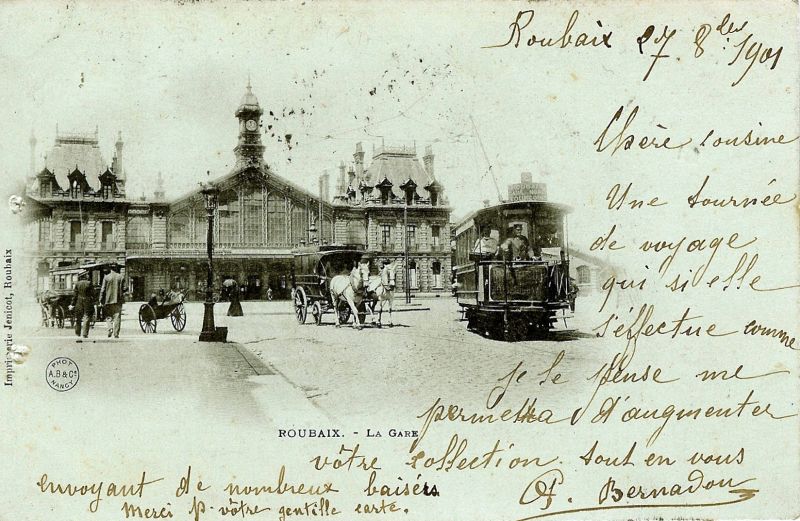 Roubaix 27 8bre 1901
Chère cousine
Une tournée
de voyage
qui si elle
s'effectue comme
je le pense me
permettra d'augmenter
vôtre collection. tout en vous
envoyant de nombreux baisers
Merci p. vôtre gentille carte.
Bernadou
ROUBAIX. - LA GARE
Imprimerie Jenicot, Roubaix
PHOT
A.B & Cie
NANCY